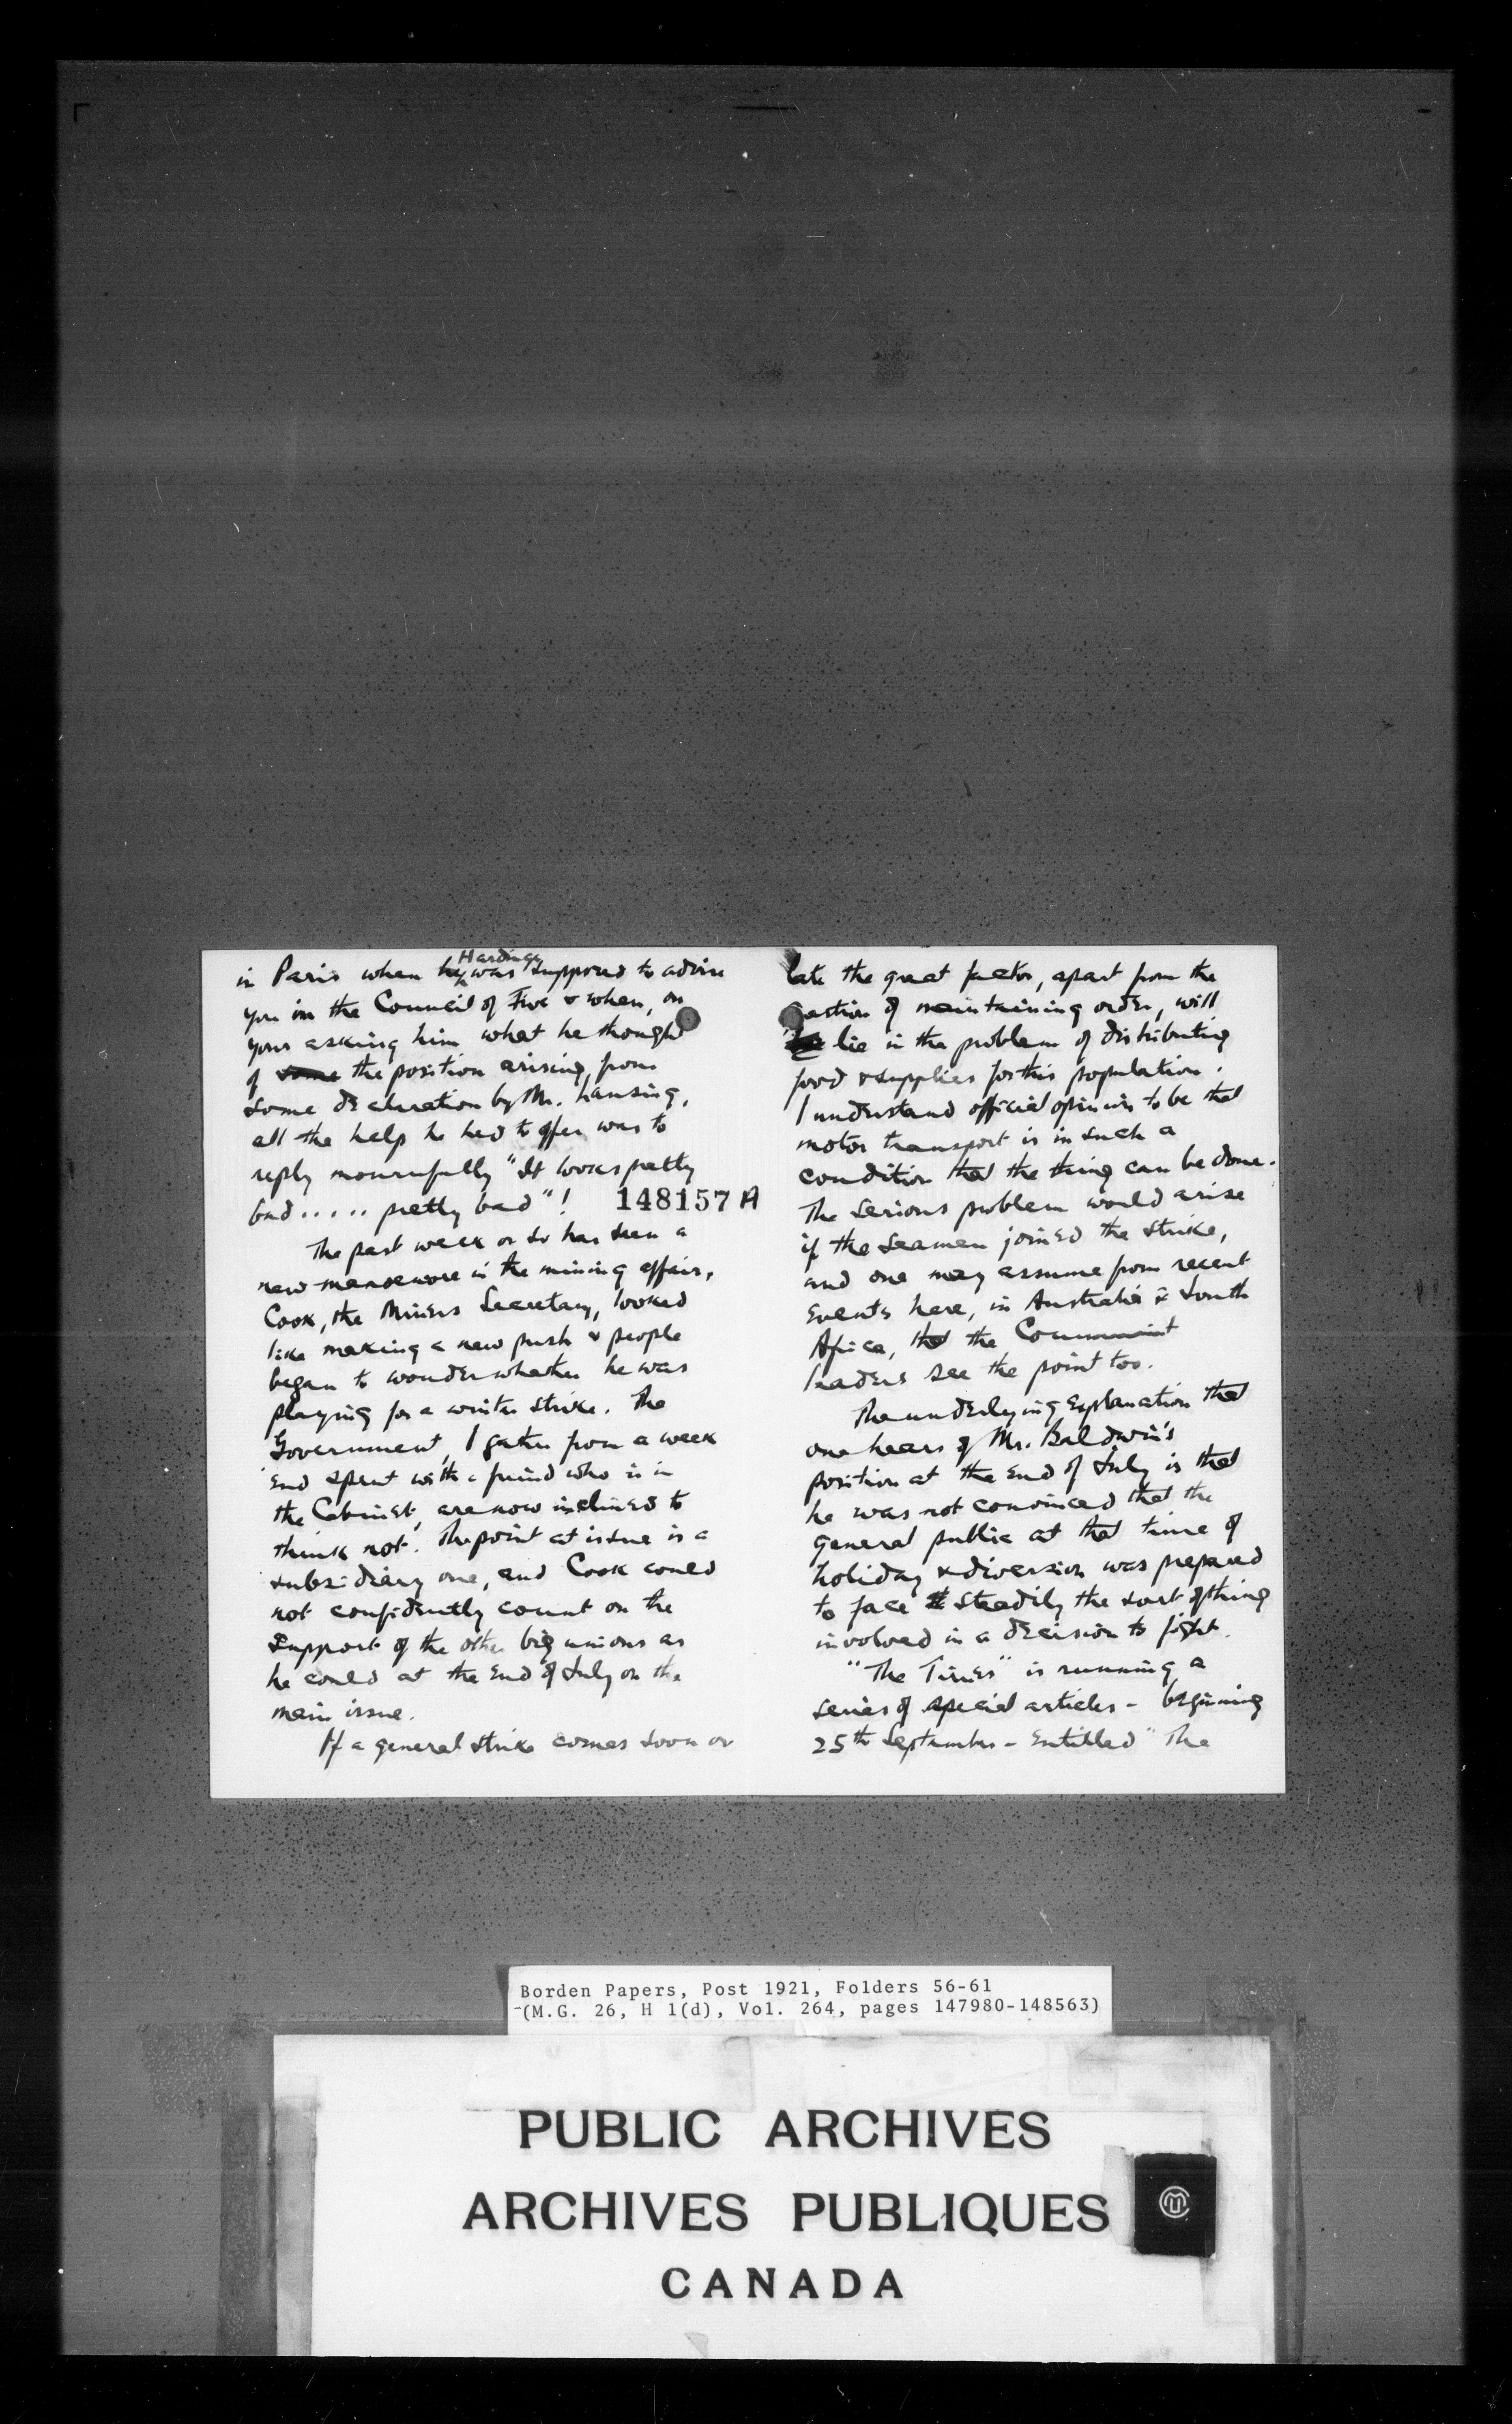 in Paris when he Hardinge was supposed to advise
you in the Council of Five & when, on
your asking him what he thought
of some the position arising from
some declaration by Mr. Lansing,
all the help he had to offer was to
reply mournfully "It looks pretty
bad..... pretty bad"!
148157 A
The past week or so has seen a
new manoeuvre in the mining affair,
Cook, the Miners Secretary, looked
like making a new push & people
began to wonder whether he was
playing for a winter strike. The
Government, I gather from a week
end spent with a friend who is in
the Cabinet, are now inclined to
think not. The point at issue is a
subsidiary one, and Cook could
not confidently count on the
support of the other big unions as
he could at the end of July on the
main issue.
If a general strike comes soon or
late the great factor, apart from the
question of maintaining order, will
lie in the problem of distributing
food & supplies for this population.
I understand official opinion to be that
motor transport is in such a
condition that the thing can be done.
The serious problem would arise
if the seamen joined the strike,
and one may assume from recent
events here, in Australia & South
Africa, that the Communist
leaders see the point too.
The underlying explanation that
one hears of Mr. Baldwin's
position at the end of July is that
he was not convinced that the
general public at that time of
holiday & diversion was prepared
to face steadily the sort of thing
involved in a decision to fight.
"The Times" is running a
series of special articles - beginning
25th September - entitled "The
Borden Papers, Post 1921, Folders 56-61
(M.G. 26, H 1(d), Vol. 264, pages 147980-148563)
PUBLIC ARCHIVES
ARCHIVES PUBLIQUES
CANADA